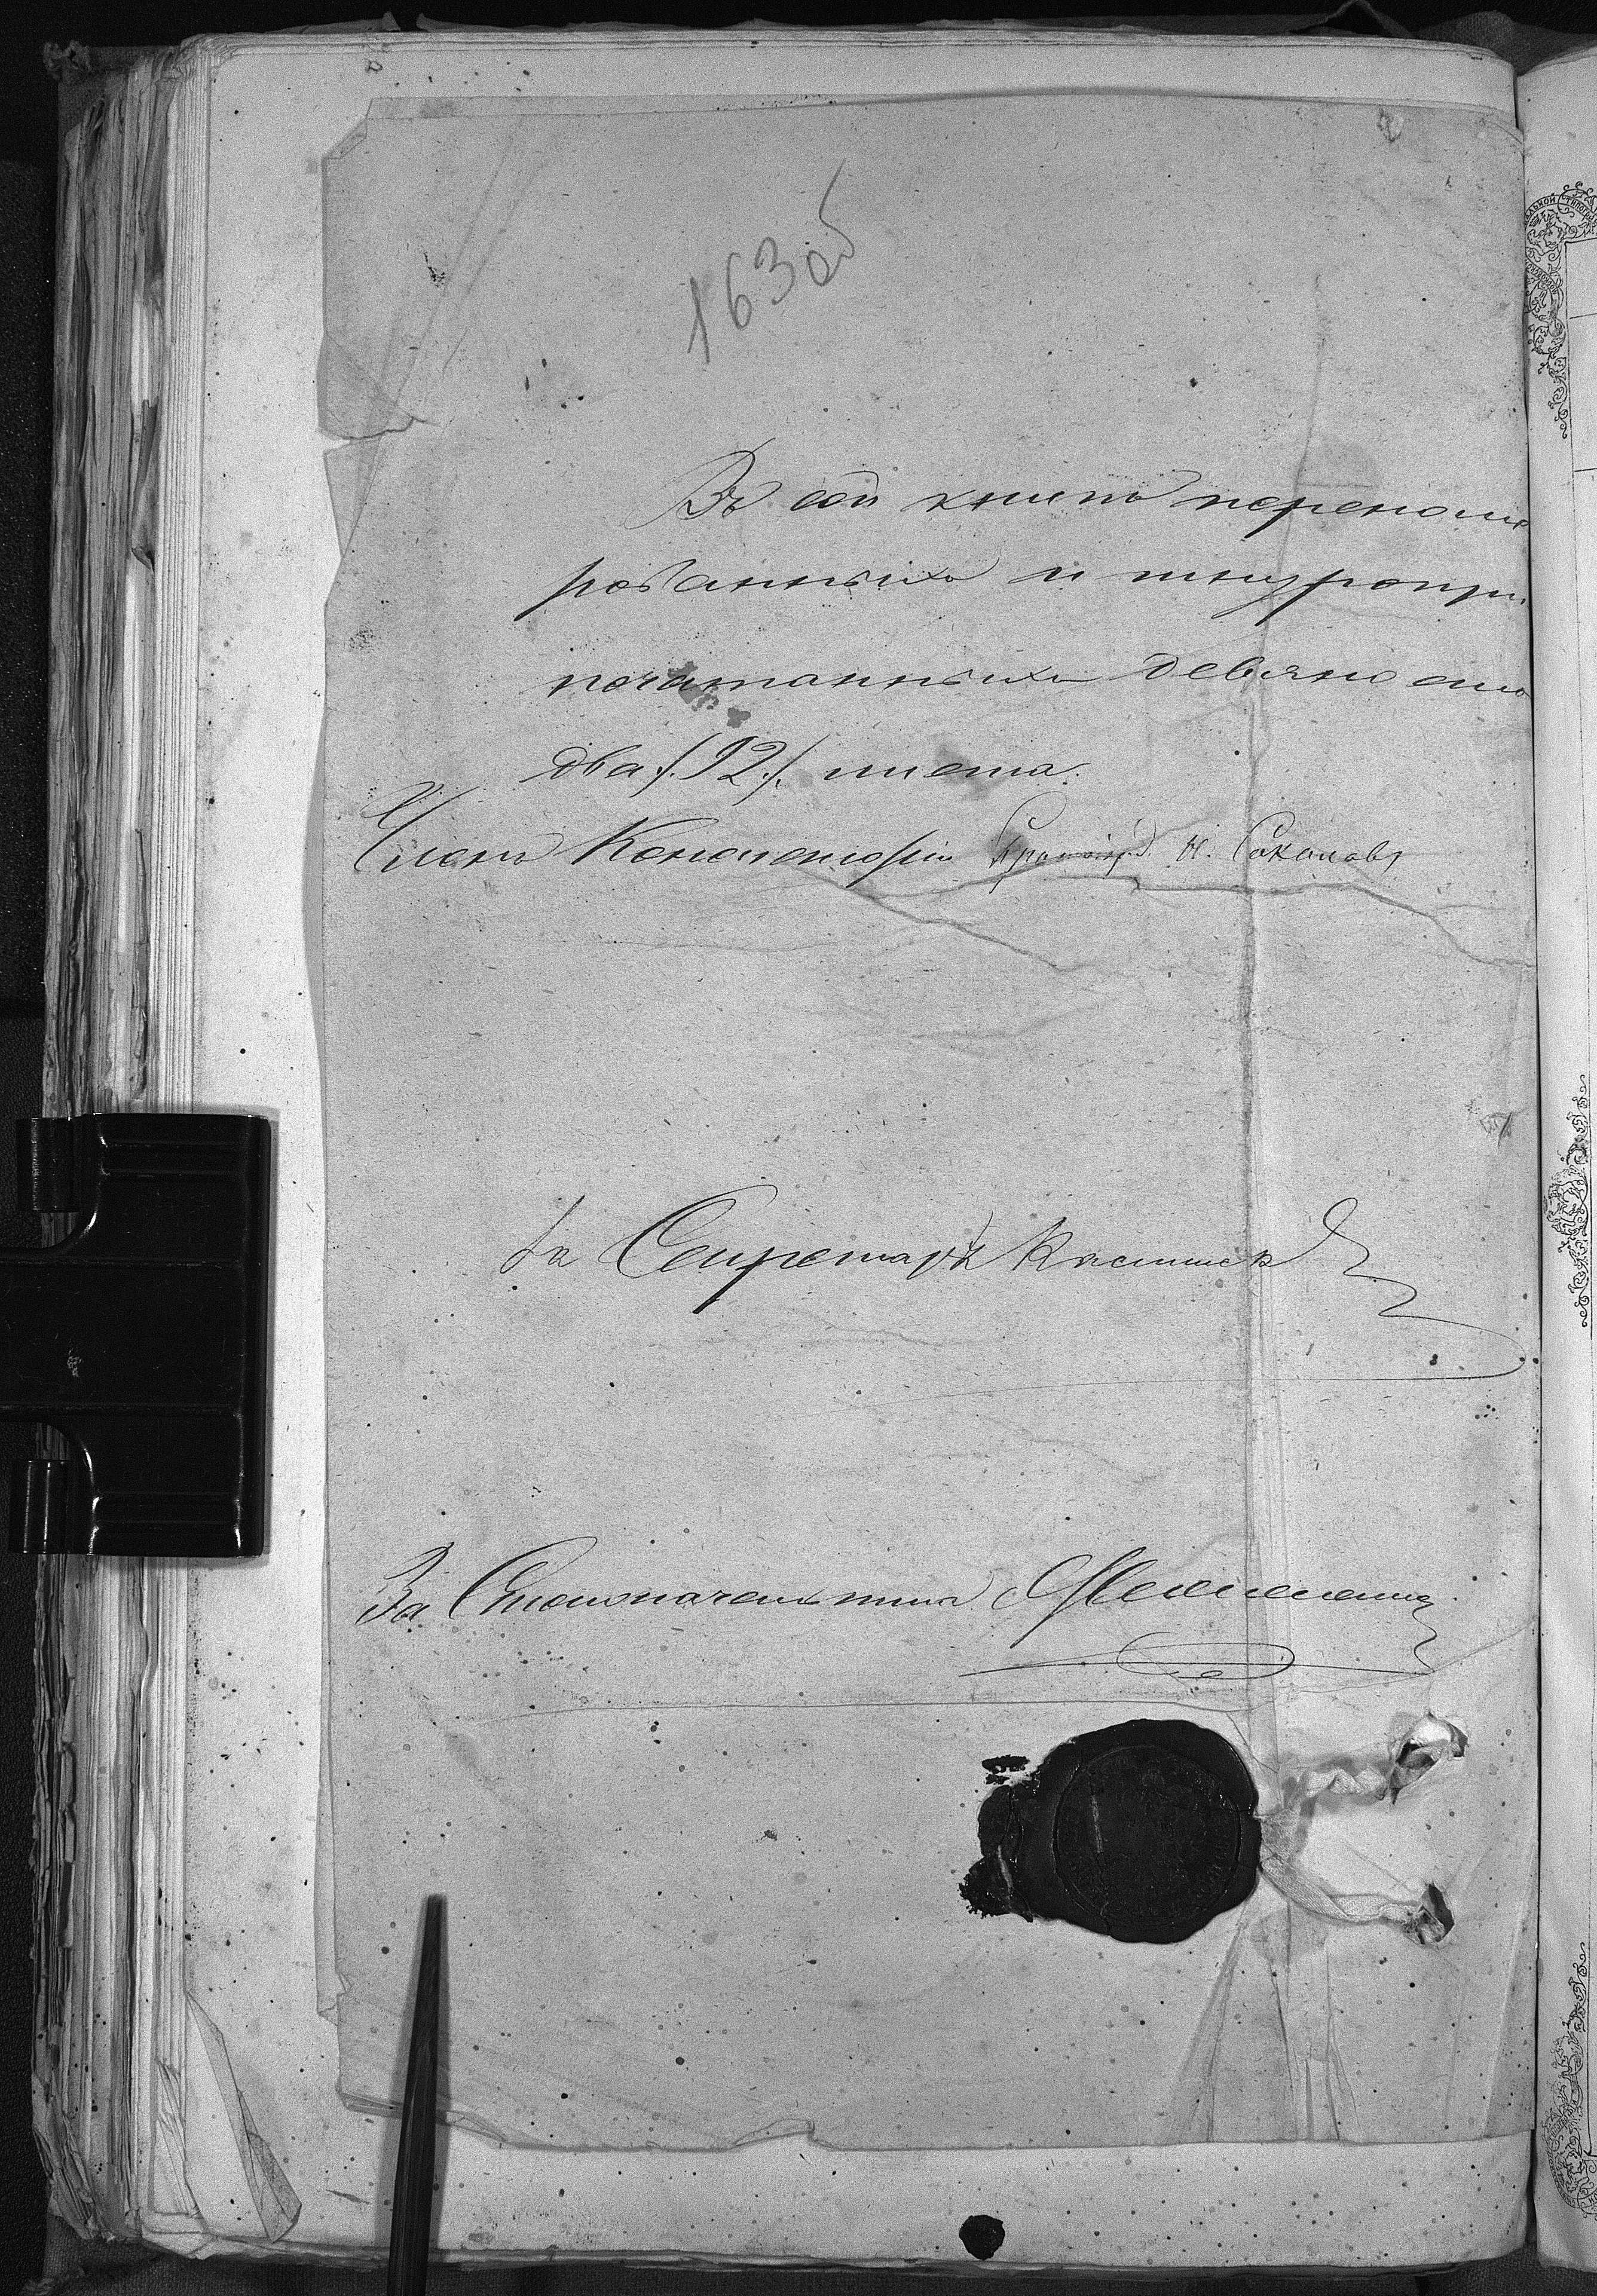 163 об
Въ сей книгѣ переноме
рованныхъ и шнуропри
печатанныхъ девяносто
два /.92./. листа.
Членъ Консисторіи Протоіер. Н. Соколовъ
За Секретаря
За Столоначальника